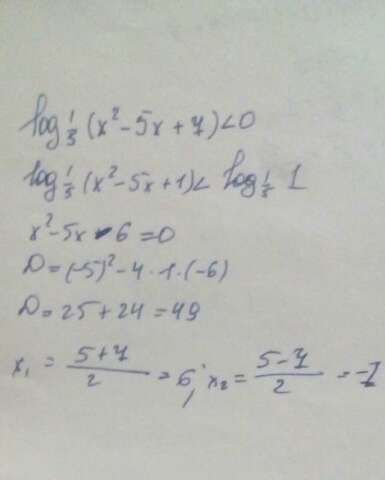 log 1/3 (x² - 5x + 7) < 0
log 1/3 (x² - 5x + 1) < log 1/3 1
x² - 5x - 6 = 0
D = (-5)² - 4 · 1 · (-6)
D = 25 + 24 = 49
x₁ = (5 + 7)/2 = 6; x₂ = (5 - 7)/2 = -1